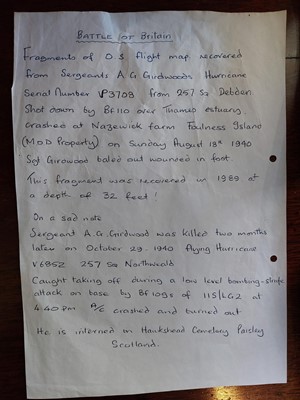 BATTLE OF BRITAIN
Fragments of O.S flight map recovered
from Sergeants A G Girdwoods Hurricane
Serial Number P3708 from 257 Sq Debden
Shot down by Bf110 over Thames estuary
crashed at Nazewick farm Foulness Island
(MOD Property) on Sunday August 18th 1940
Sgt Girdwood baled out wounded in foot.
This fragment was recovered in 1989 at
a depth of 32 feet!
On a sad note
Sergeant A.G. Girdwood was killed two months
later on October 29. 1940 flying Hurricane
V6852 257 Sq Northweald
Caught taking off during a low level bombing-strafe
attack on base by Bf109s of 11S/LG2 at
4.40 pm A/c crashed and burned out
He is interned in Hawkshead Cemetery Paisley
Scotland.